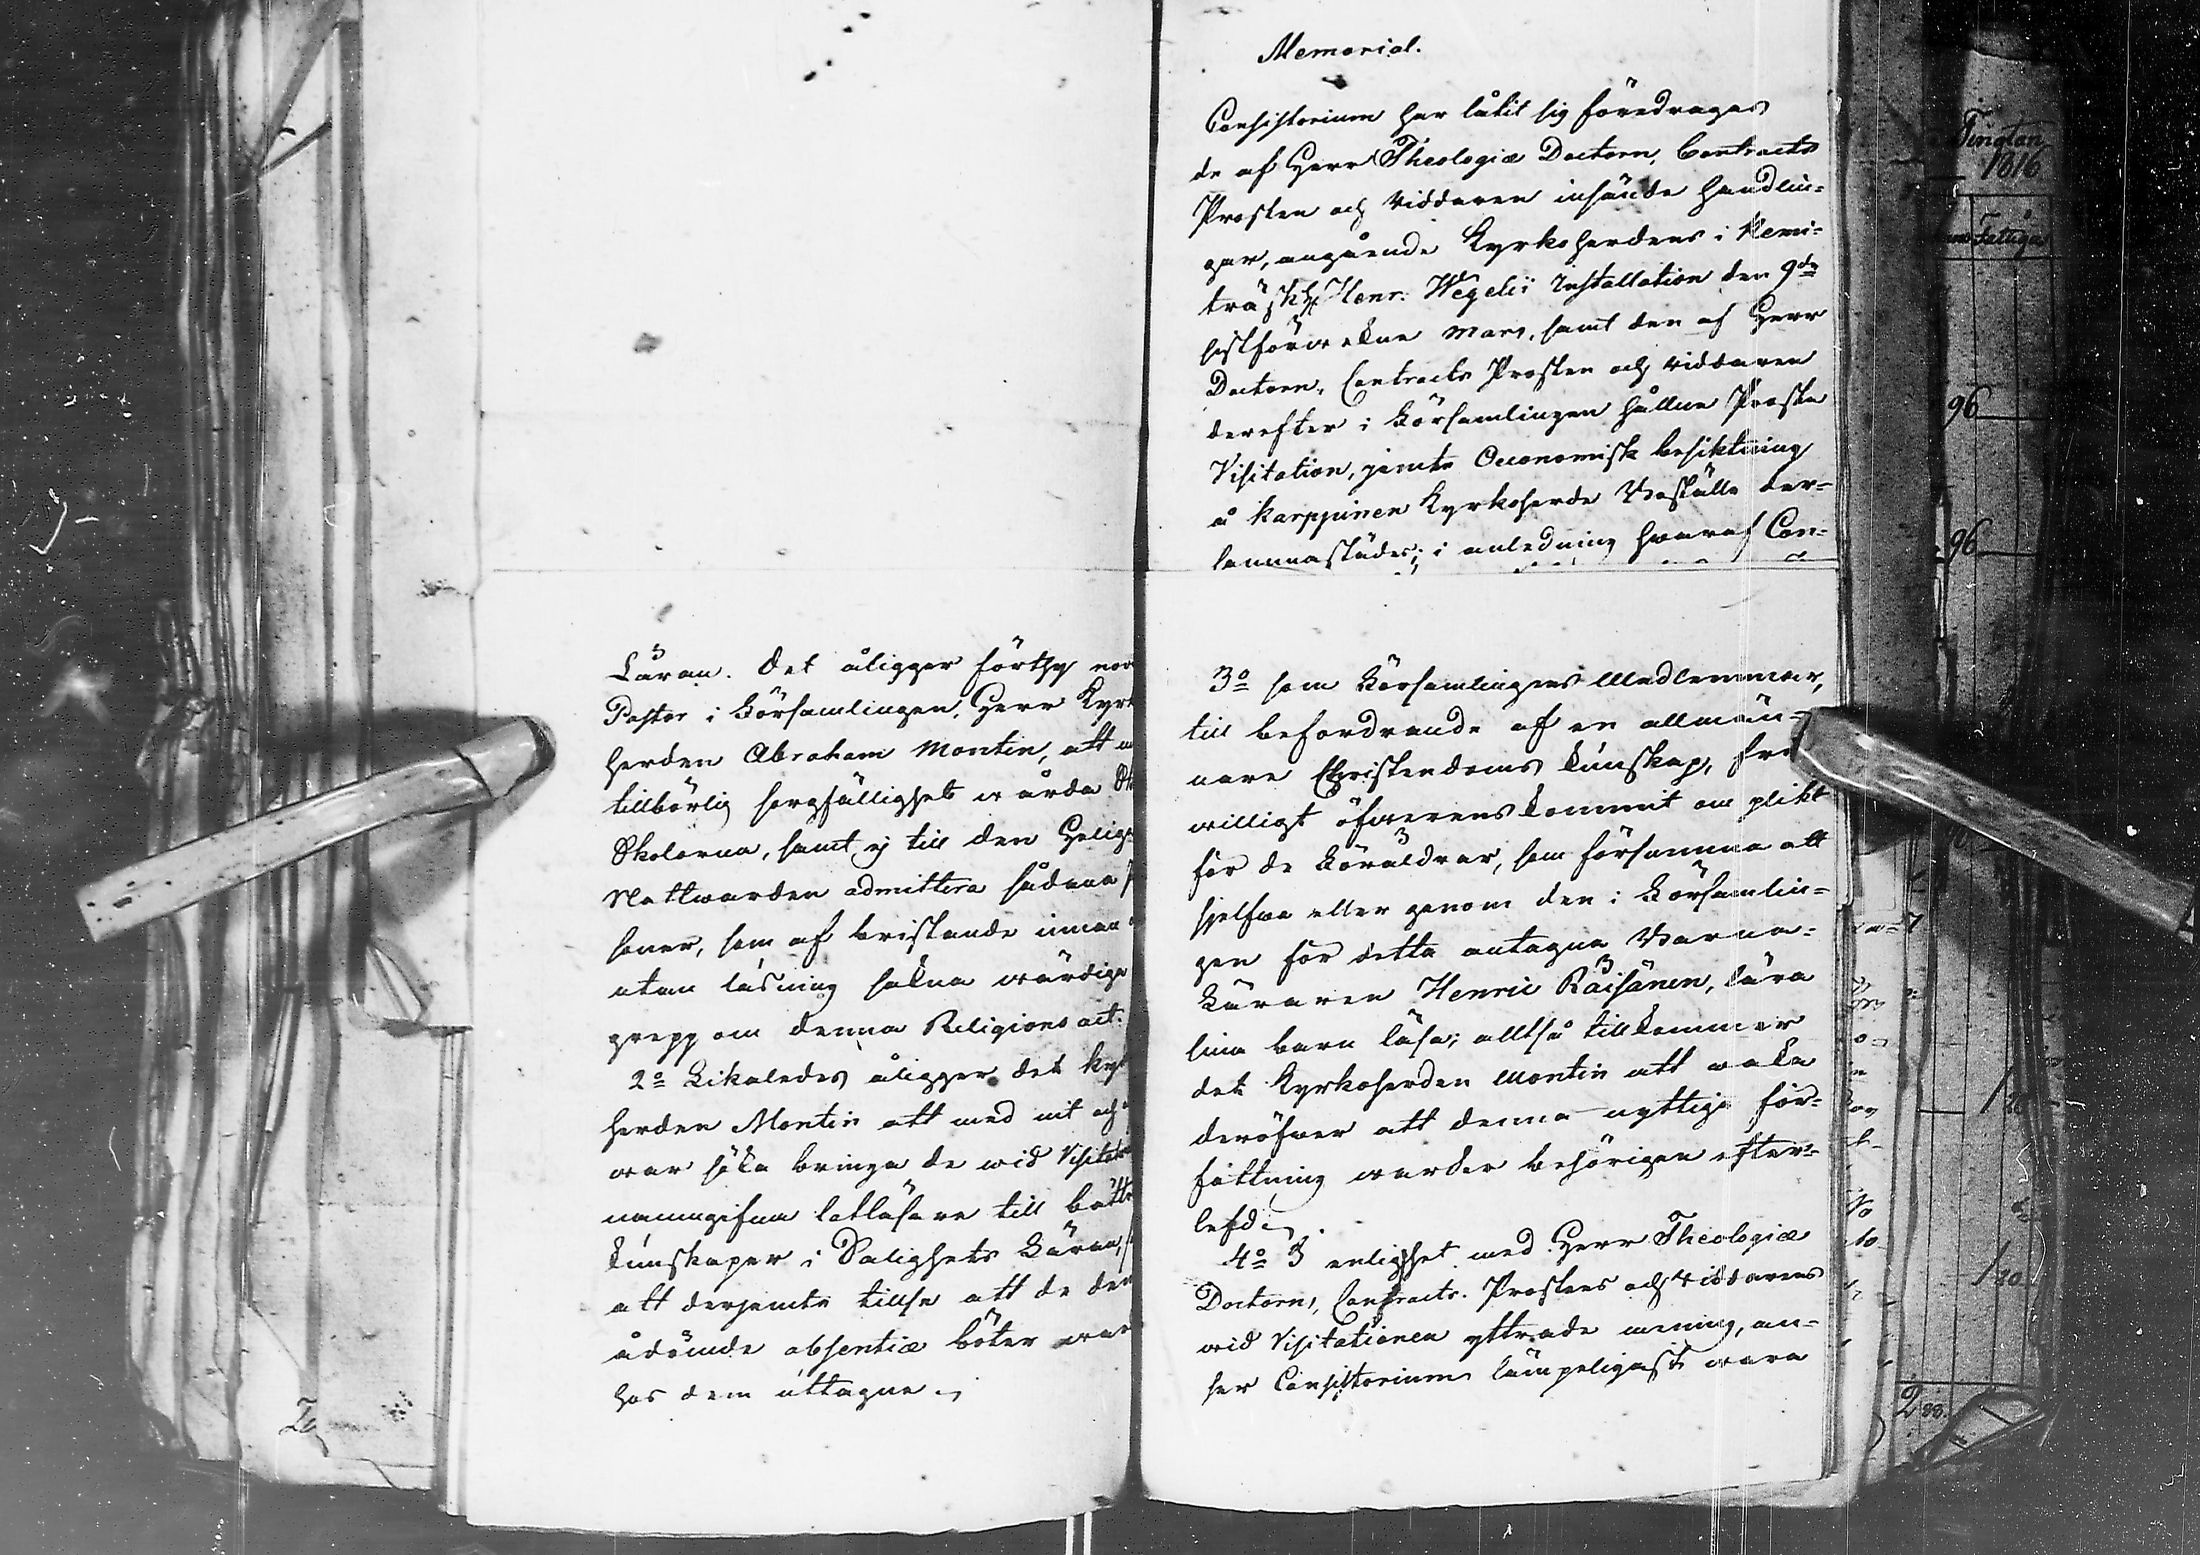 Memorial.
Consistorium har låtit sig föredragas
de af Herr Theologiæ Doctorn, Contracts
Prosten och Riddaren insände handlin-
gar, angående Kyrkoherdens i Kemi-
träsk Henr. Wegelii Installation den 9de
sistförwekne Mars, samt den af Herr
Doctorn, Contracts Prosten och Riddaren
derefter i Församlingen hållne Prosta
Visitation, jemte Oeconomisk besiktning
å Karppinen Kyrkoherde Boställe der-
sammastädes; i anledning hwaraf Con-
Läran. Det åligger förthy
Pastor i Församlingen, Herr Kyrk
herden Abraham Montin, att
tillbörlig sorgfällighet wårda
Skolorna, samt ej till den Helig
Nattwarden admittera sådana
soner, som af bristande innan
utan läsning sakna wärdige
grepp om denna Religions act.
2o Likaledes åligger det Kyr
herden Montin att med nit och
war söka bringa de wid Visitat
namngifne latläsare till bättr
kunskaper i Salighets Läran,
att derjemte tillse att de dem
ådömde absentiæ böter war
hos dem uttagne.
3o som Församlingens Medlemmar,
till befordrande af en allmän-
nare Christendoms kunskap, fri
willigt öfwerenskommit om plikt
för de Föräldrar, som försumma att
sjelfwe eller genom den i Församlin-
gen för detta antagne Barna-
Läraren Henric Räisänen, lära
sina barn läsa; alltså tillkommer
det Kyrkoherden Montin att waka
deröfwer att denna nyttiga för-
fattning warder behörigen efter-
lefd.
4o I enlighet med Herr Theologiæ
Doctorns, Contracts Prostens och Riddarens
wid Visitationen yttrade mening, an-
ser Consistorium lämpeligast wara
1816
96
96